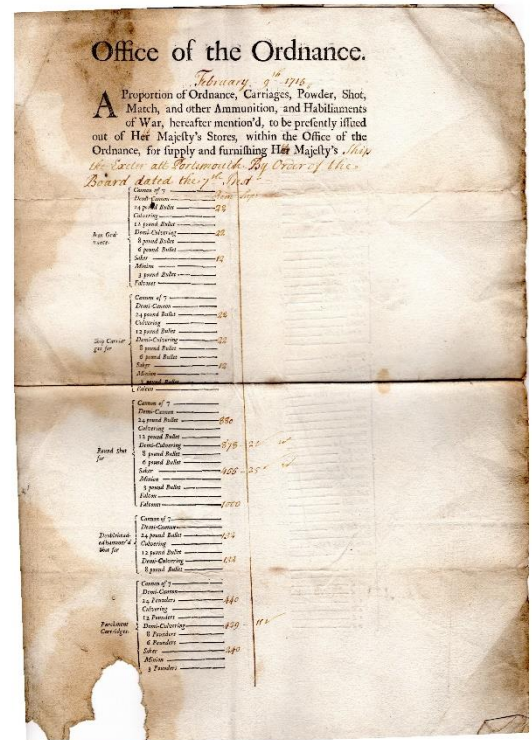 Office of the Ordnance.
February 9th 1715
A Proportion of Ordnance, Carriages, Powder, Shot,
Match, and other Ammunition, and Habiliaments
of War, hereafter mention'd, to be presently iſſued
out of Her Majeſty's Stores, within the Office of the
Ordnance, for ſupply and furniſhing His Majeſty's Ship
the Exeter att Portsmouth By Order of the
Board dated the 7th Inst
Iron Ord-
nance.
Cannon of 7
Demi-Cannon
24 pound Bullet 22
Culvering
12 pound Bullet
Demi-Culvering 22
8 pound Bullet
6 pound Bullet
Saker 12
Minion
3 pound Bullet
Falconet
Ship Carria-
ges for
Cannon of 7
Demi-Cannon
24 pound Bullet 22
Culvering
12 pound Bullet
Demi-Culvering 22
8 pound Bullet
6 pound Bullet
Saker 12
Minion
3 pound Bullet
Falcon
Round Shot
for
Cannon of 7
Demi-Cannon
24 pound Bullet 880
Culvering
12 pound Bullet
Demi-Culvering 878
8 pound Bullet
6 pound Bullet
Saker 455 25
Minion
3 pound Bullet
Falcon
Falconet 1000
Doublehead-
ed hammer'd
Shot for
Cannon of 7
Demi-Cannon
24 pound Bullet
Culvering
12 pound Bullet
Demi-Culvering
8 pound Bullet
Parchment
Cartridges.
Cannon of 7
Demi-Cannon
24 Pounders 440
Culvering
12 Pounders
Demi-Culvering 429
8 Pounders
6 Pounders
Saker 240
Minion
3 Pounders